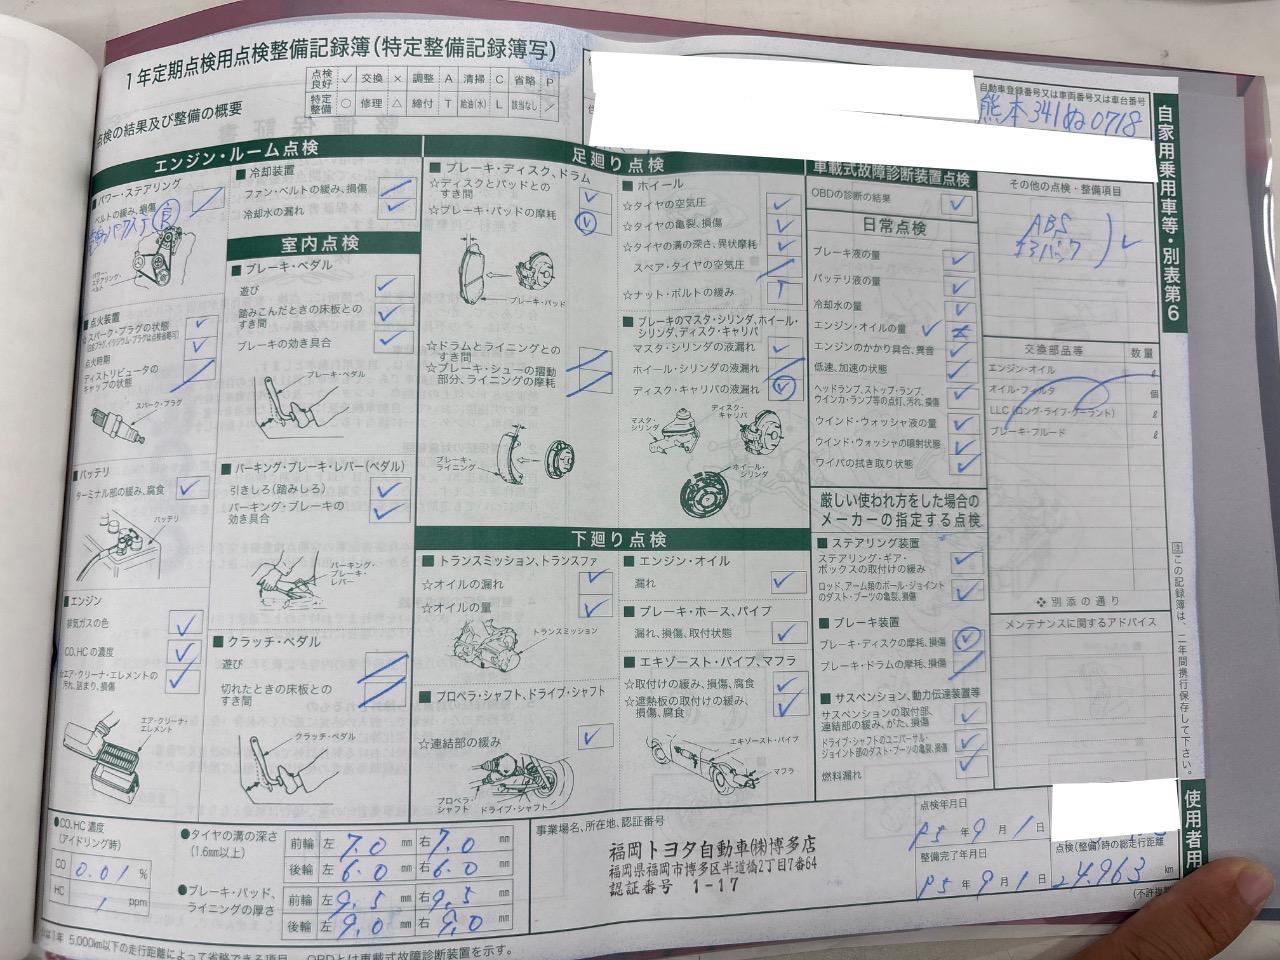 1年定期点検用点検整備記録簿(特定整備記録簿写)
点検の結果及び整備の概要
点検良好 ✓ 交換 × 調整 A 清掃 C 省略 P
特定整備 ○ 修理 △ 締付 T 給油(水) L 該当なし ／
自動車登録番号又は車両番号又は車台番号
熊本341ぬ0718
自家用乗用車等・別表第6
エンジン・ルーム点検
■パワー・ステアリング
ベルトの緩み、損傷
パワー・ステアリング・ベルト
■点火装置
☆スパーク・プラグの状態
(白金プラグ、イリジウム・プラグは点検省略可)
点火時期
ディストリビュータのキャップの状態
スパーク・プラグ
■バッテリ
ターミナル部の緩み、腐食
バッテリ
■エンジン
排気ガスの色
CO、HCの濃度
☆エア・クリーナ・エレメントの汚れ、詰まり、損傷
エア・クリーナ・エレメント
■冷却装置
ファン・ベルトの緩み、損傷
冷却水の漏れ
室内点検
■ブレーキ・ペダル
遊び
踏みこんだときの床板とのすき間
ブレーキの効き具合
ブレーキ・ペダル
■パーキング・ブレーキ・レバー(ペダル)
引きしろ(踏みしろ)
パーキング・ブレーキの効き具合
パーキング・ブレーキ・レバー
■クラッチ・ペダル
遊び
切れたときの床板とのすき間
クラッチ・ペダル
足廻り点検
■ブレーキ・ディスク、ドラム
☆ディスクとパッドとのすき間
☆ブレーキ・パッドの摩耗
ブレーキ・パッド
☆ドラムとライニングとのすき間
☆ブレーキ・シューの摺動部分、ライニングの摩耗
ブレーキ・ライニング
■ホイール
☆タイヤの空気圧
☆タイヤの亀裂、損傷
☆タイヤの溝の深さ、異状摩耗
スペア・タイヤの空気圧
☆ナット・ボルトの緩み T
■ブレーキのマスタ・シリンダ、ホイール・シリンダ、ディスク・キャリパ
マスタ・シリンダの液漏れ
ホイール・シリンダの液漏れ
ディスク・キャリパの液漏れ
マスタ・シリンダ
ディスク・キャリパ
ホイール・シリンダ
下廻り点検
■トランスミッション、トランスファ
☆オイルの漏れ
☆オイルの量
トランスミッション
■プロペラ・シャフト、ドライブ・シャフト
☆連結部の緩み
プロペラ・シャフト
ドライブ・シャフト
■エンジン・オイル
漏れ
■ブレーキ・ホース、パイプ
漏れ、損傷、取付状態
■エキゾースト・パイプ、マフラ
☆取付けの緩み、損傷、腐食
☆遮熱板の取付けの緩み、損傷、腐食
エキゾースト・パイプ
マフラ
車載式故障診断装置点検
OBDの診断の結果
日常点検
ブレーキ液の量
バッテリ液の量
冷却水の量
エンジン・オイルの量
エンジンのかかり具合、異音
低速、加速の状態
ヘッドランプ、ストップ・ランプ、ウインカ・ランプ等の点灯、汚れ、損傷
ウインド・ウォッシャ液の量
ウインド・ウォッシャの噴射状態
ワイパの拭き取り状態
厳しい使われ方をした場合のメーカーの指定する点検
■ステアリング装置
ステアリング・ギア・ボックスの取付けの緩み
ロッド、アーム類のボール・ジョイントのダスト・ブーツの亀裂、損傷
■ブレーキ装置
ブレーキ・ディスクの摩耗、損傷
ブレーキ・ドラムの摩耗、損傷
■サスペンション、動力伝達装置等
サスペンションの取付部、連結部の緩み、がた、損傷
ドライブ・シャフトのユニバーサル・ジョイント部のダスト・ブーツの亀裂、損傷
燃料漏れ
その他の点検・整備項目
ABS
交換部品等 数量
エンジン・オイル ℓ
オイル・フィルタ 個
LLC(ロング・ライフ・クーラント) ℓ
ブレーキ・フルード ℓ
❖別添の通り
メンテナンスに関するアドバイス
注 この記録簿は、二年間携行保存して下さい。
使用者用
●CO、HC濃度
(アイドリング時)
CO 0.01 %
HC 1 ppm
●タイヤの溝の深さ
(1.6mm以上)
前輪 左 7.0 mm 右 7.0 mm
後輪 左 6.0 mm 右 6.0 mm
●ブレーキ・パッド、ライニングの厚さ
前輪 左 9.5 mm 右 9.5 mm
後輪 左 9.0 mm 右 9.0 mm
事業場名、所在地、認証番号
福岡トヨタ自動車㈱博多店
福岡県福岡市博多区半道橋2丁目7番64
認証番号 1-17
点検年月日
R5年9月1日
整備完了年月日
R5年9月1日
点検(整備)時の総走行距離
24,963 km
5,000km以下の走行距離によって省略できる項目 OBDとは車載式故障診断装置を示す。